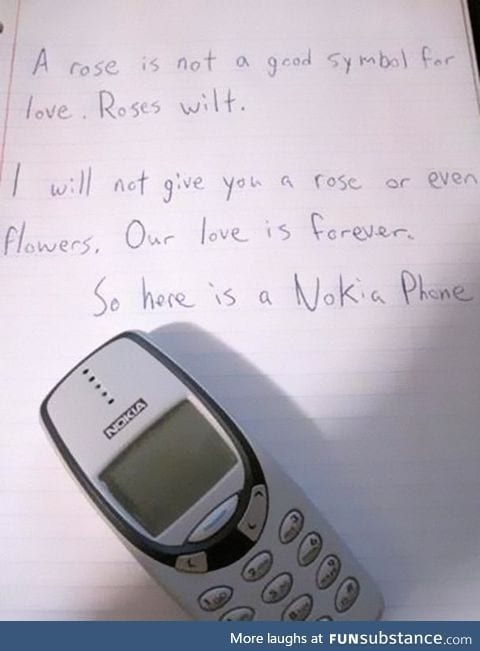 A rose is not a good symbol for
love. Roses wilt.
I will not give you a rose or even
flowers. Our love is forever.
So here is a Nokia Phone
NOKIA
More laughs at FUNsubstance.com